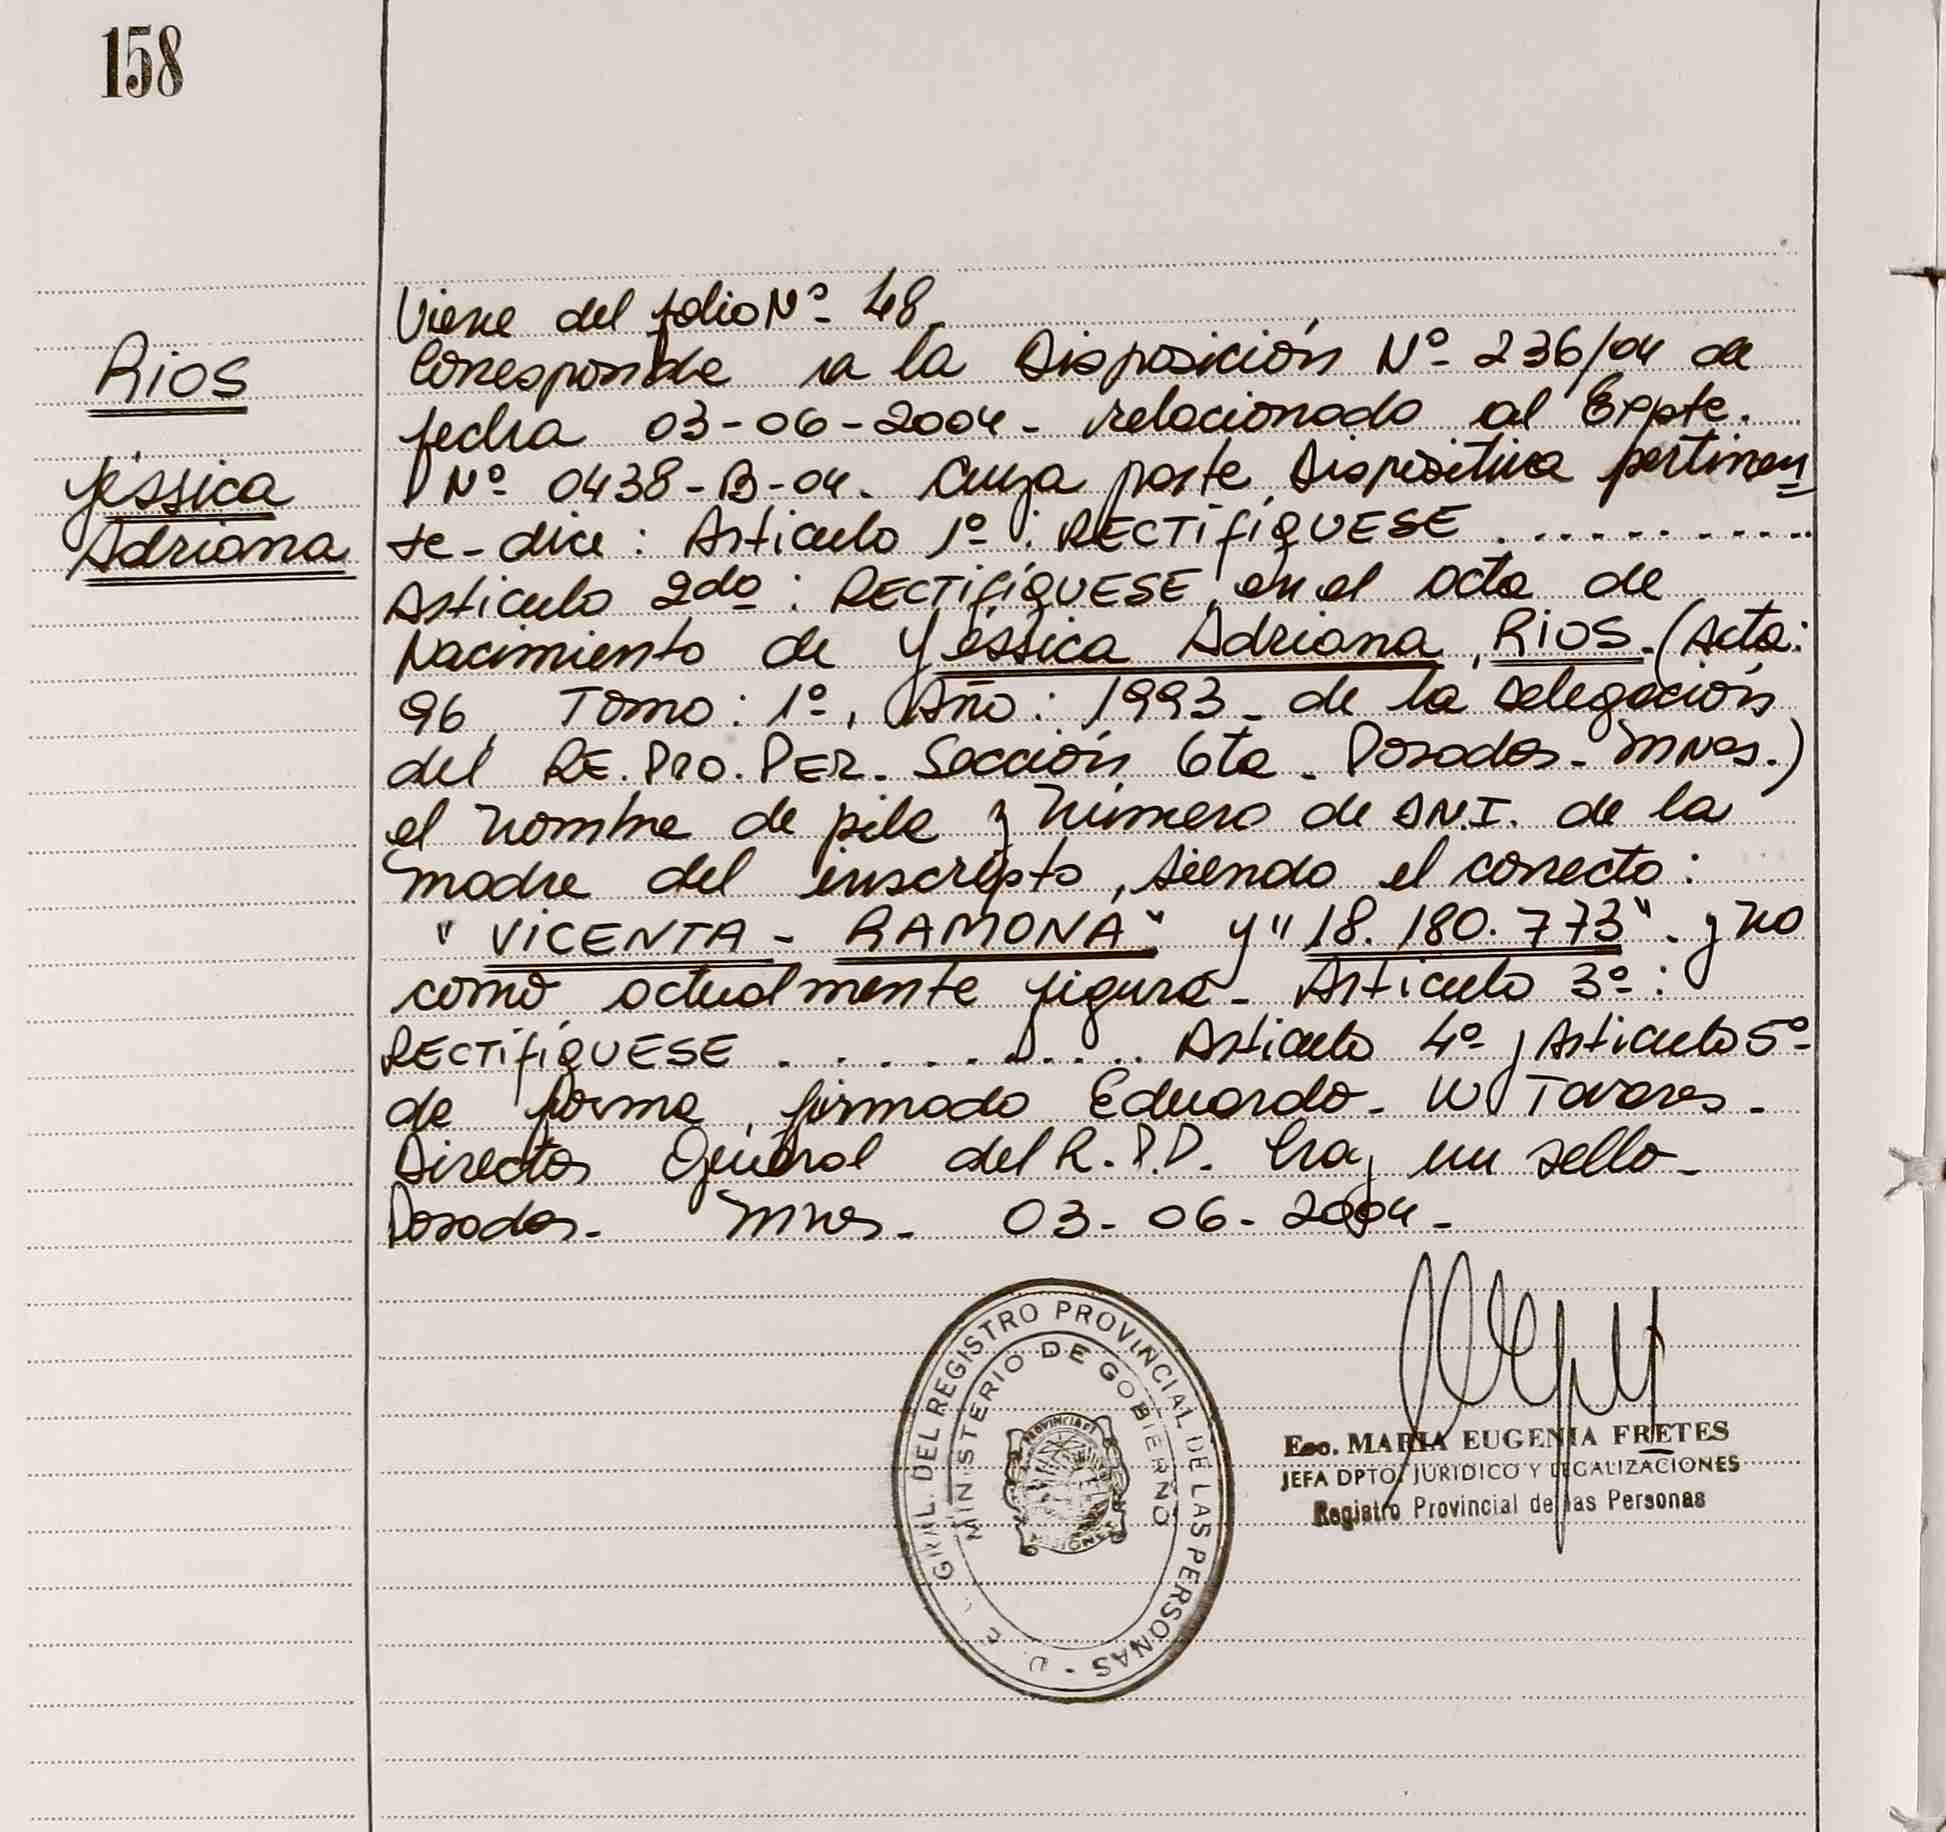 158
Viene del folio Nº 48
Rios
Corresponde a la Disposición Nº 236/04 de
fecha 03-06-2004- relacionado al Expte.
Yéssica
Nº 0438-B-04. Cuya parte Dispositiva pertinen
Adriana
te-dice: Articulo 1º: RECTIFIQUESE ...........
Articulo 2do: RECTIFIQUESE, en el acta de
Nacimiento de Yéssica Adriana, RIOS. (Acta:
96, Tomo: 1º, Año: 1993- de la Delegación
del RE.PRO.PER. Sección 6ta- Posadas- Mnes.)
el nombre de pila y número de D.N.I. de la
madre del inscripto, siendo el correcto:
" VICENTA - RAMONA" y "18.180.773". y no
como actualmente figura- Articulo 3º:
RECTIFIQUESE ........... Articulo 4º y Articulo 5º
de forma, firmado Eduardo- W Tavares-
Director General del R.P.P. hay un sello-
Posadas- Mnes- 03-06-2004-
GRAL. DEL REGISTRO PROVINCIAL DE LAS PERSONAS
MINISTERIO DE GOBIERNO
PROVINCIA DE
MISIONES
Esc. MARIA EUGENIA FRETES
JEFA DPTO. JURIDICO Y LEGALIZACIONES
Registro Provincial de las Personas